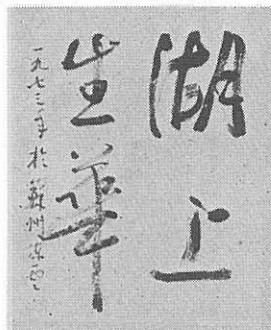 湖上
生華
一九七三年於蘇州